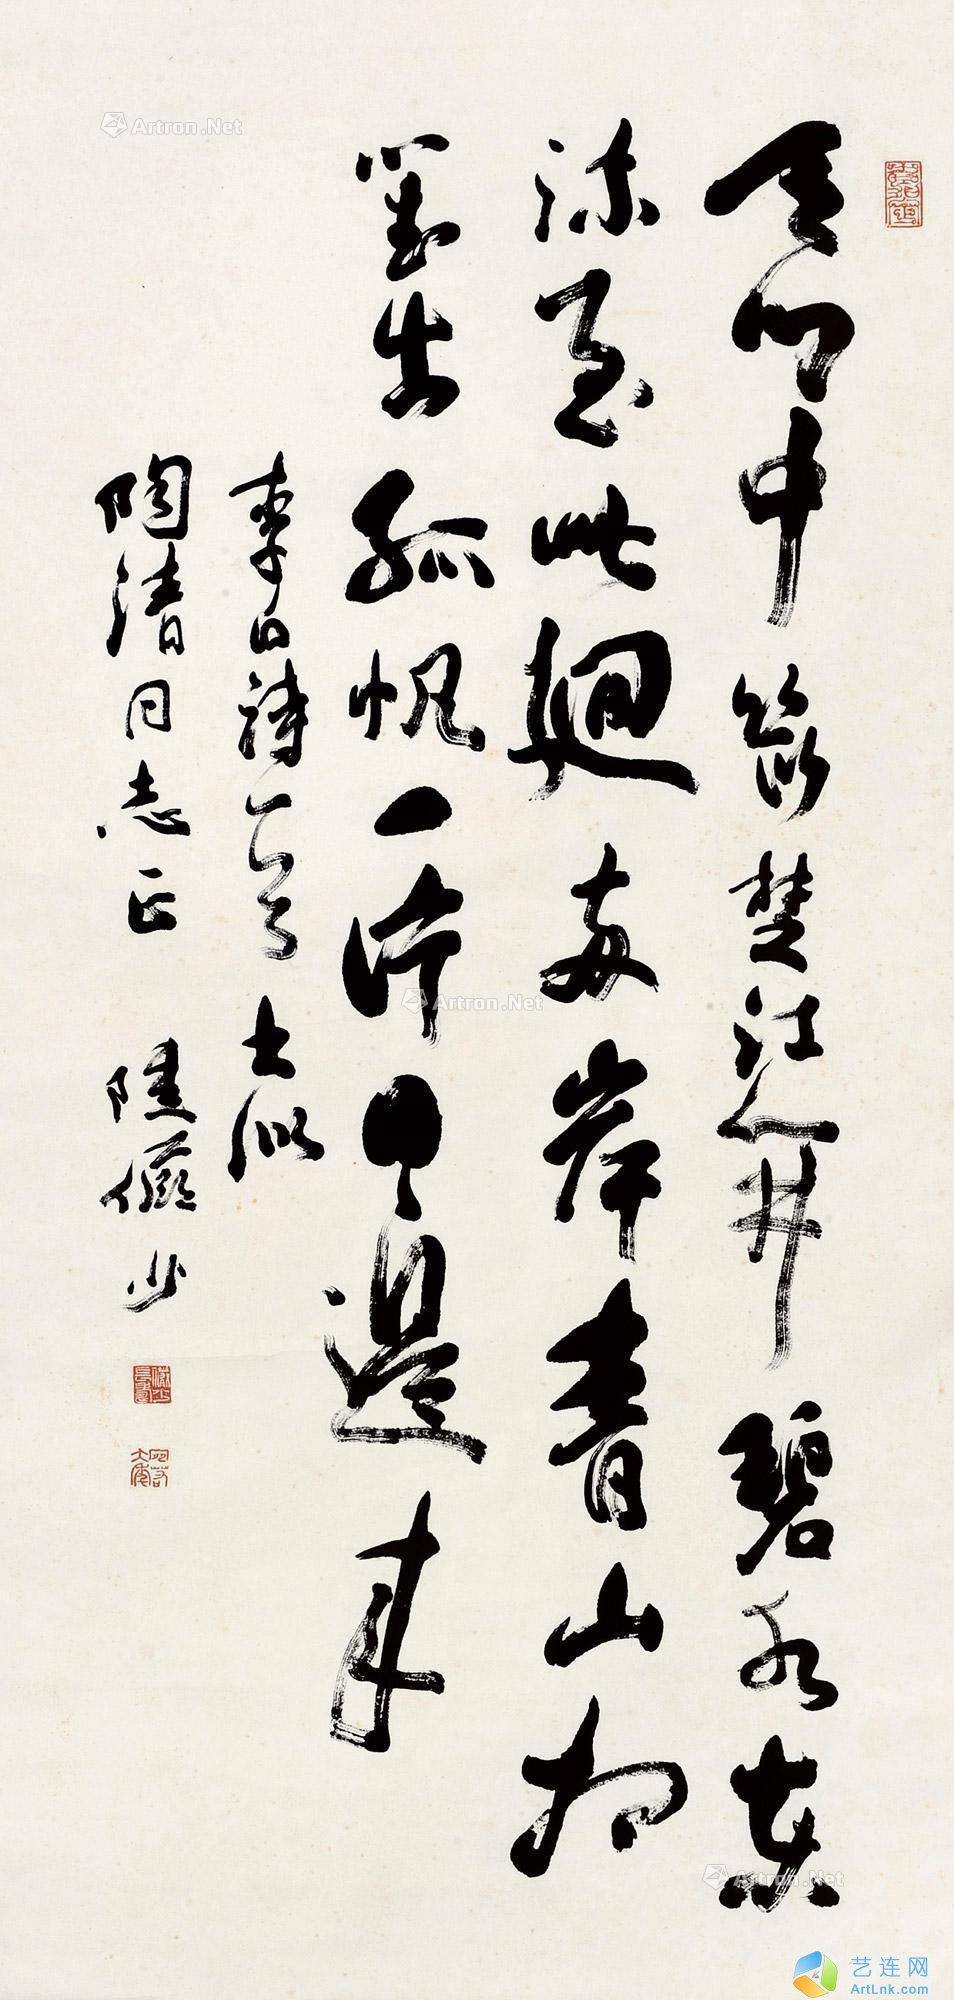 天門中斷楚江開碧水東
流至此迴兩岸青山相
對出孤帆一片日邊來
李白詩一首 士似
陶清同志正 陸儼少
Artron.Net
Artron.Net
Artron.Net
艺连网
ArtLnk.com